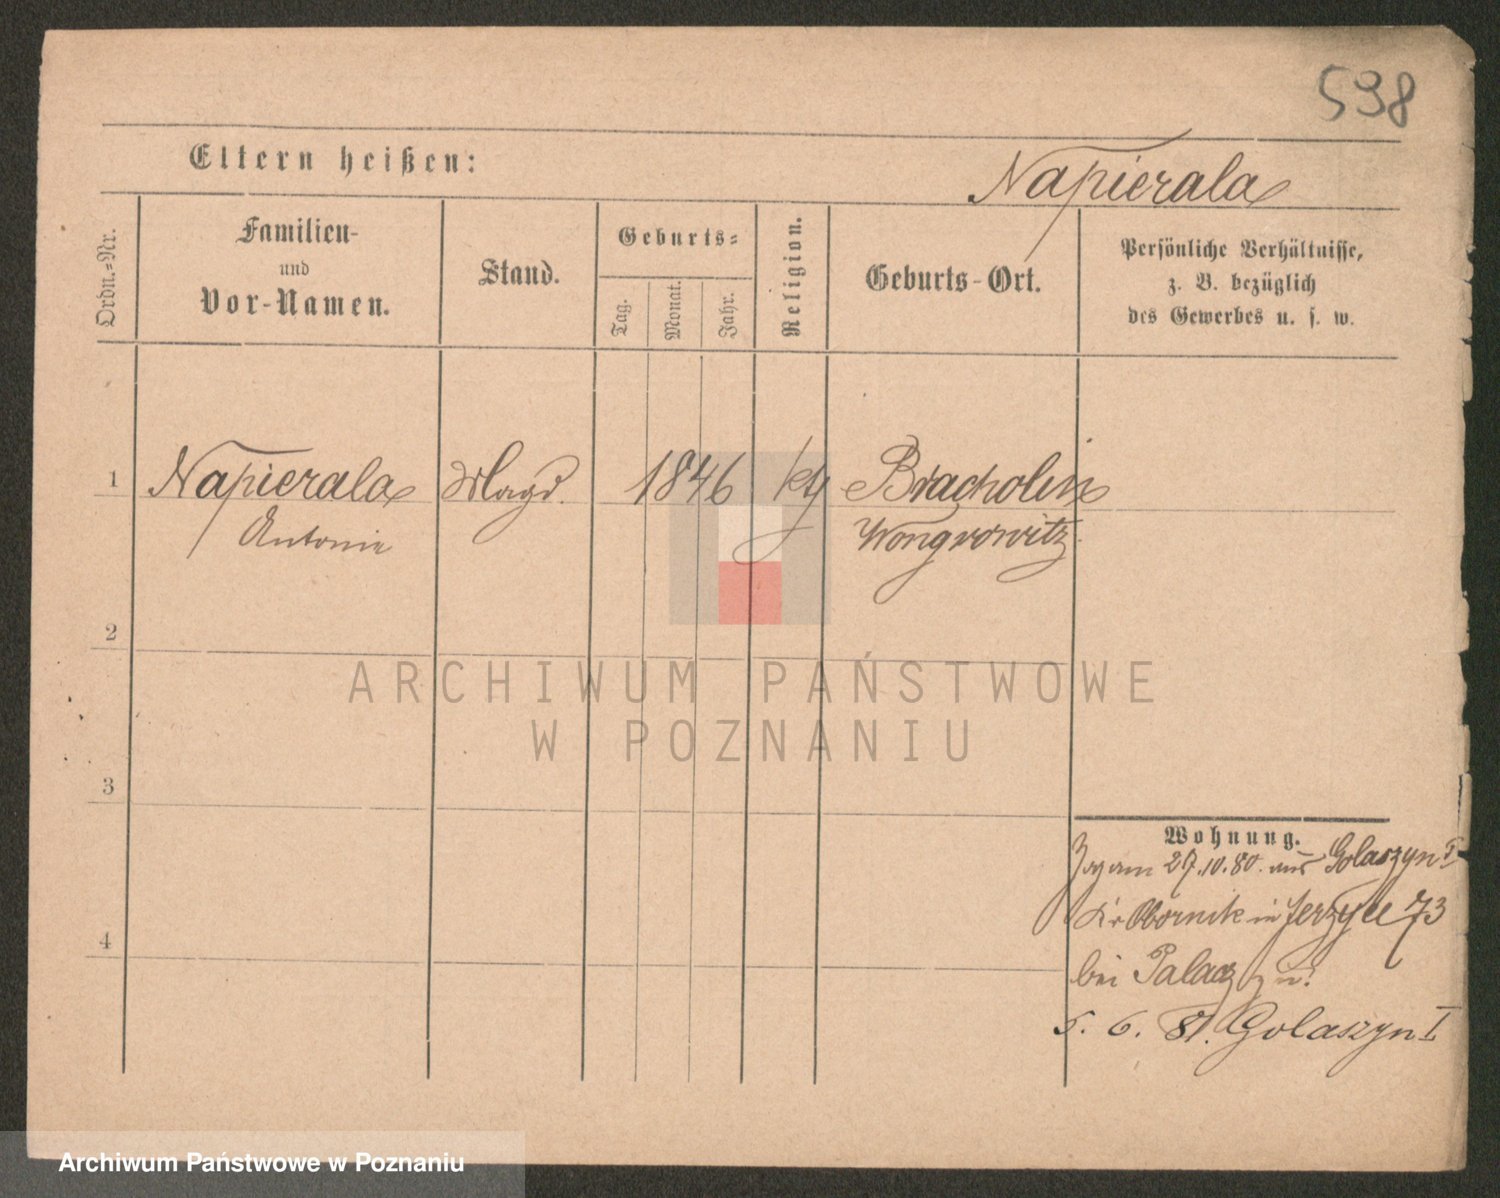 598
Eltern heißen:
Napierala
Ordn.-Nr.
Familien-
und
Vor-Namen.
Stand.
Geburts-
Tag.
Monat.
Jahr.
Religion.
Geburts-Ort.
Persönliche Verhältnisse,
z. B. bezüglich
des Gewerbes u. s. w.
1 Napierala Magd. 1846 kth Bracholin
Antonie Wongrowitz
2
3
4
Wohnung.
Zog am 27.10.80. aus Golaszyn I
Kr Obornik in Jerzyce 73
bei Palacz
5. 6. 81. Golaszyn I
ARCHIWUM PAŃSTWOWE
W POZNANIU
Archiwum Państwowe w Poznaniu